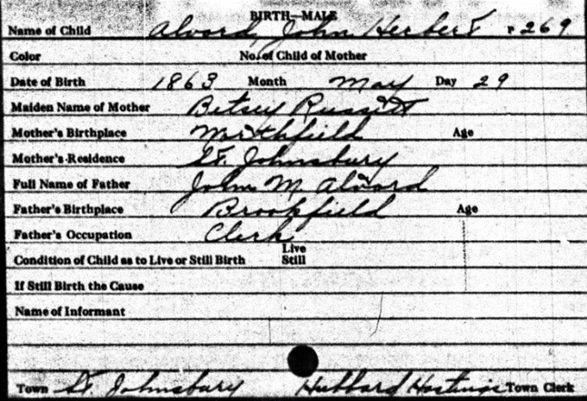 BIRTH—MALE
Name of Child Alvord John Herbert P 269
Color No. of Child of Mother
Date of Birth 1863 Month May Day 29
Maiden Name of Mother Betsey
Mother's Birthplace Age
Mother's Residence St. Johnsbury
Full Name of Father John M Alvord
Father's Birthplace Brookfield Age
Father's Occupation Clerk
Live
Condition of Child as to Live or Still Birth Still
If Still Birth the Cause
Name of Informant
Town St. Johnsbury Hubbard Hastings Town Clerk